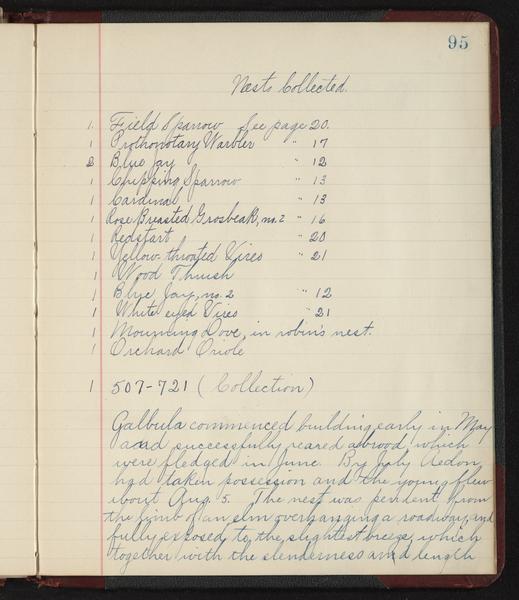 95
Nests Collected.
1. Field Sparrow See page 20.
1 Prothonotary Warbler " 17
2 Blue Jay " 12
1 Chipping Sparrow " 13
1 Cardinal " 13
1 Rose Breasted Grosbeak, no. 2 " 16
1 Redstart " 20
1 Yellow-throated Vireo " 21
1 Wood Thrush
1 Blue Jay, no. 2 " 12
1 White eyed Vireo " 21
1 Mourning Dove, in robin's nest.
1 Orchard Oriole
1 507-721 (Collection)
Galbula commenced building early in May
and successfully reared a brood, which
were fledged in June. By July Aedon
had taken possession and the young flew
about Aug. 5. The nest was pendent from
the limb of an elm overhanging a roadway, and
fully exposed to the slightest breeze, which
together with the slenderness and length